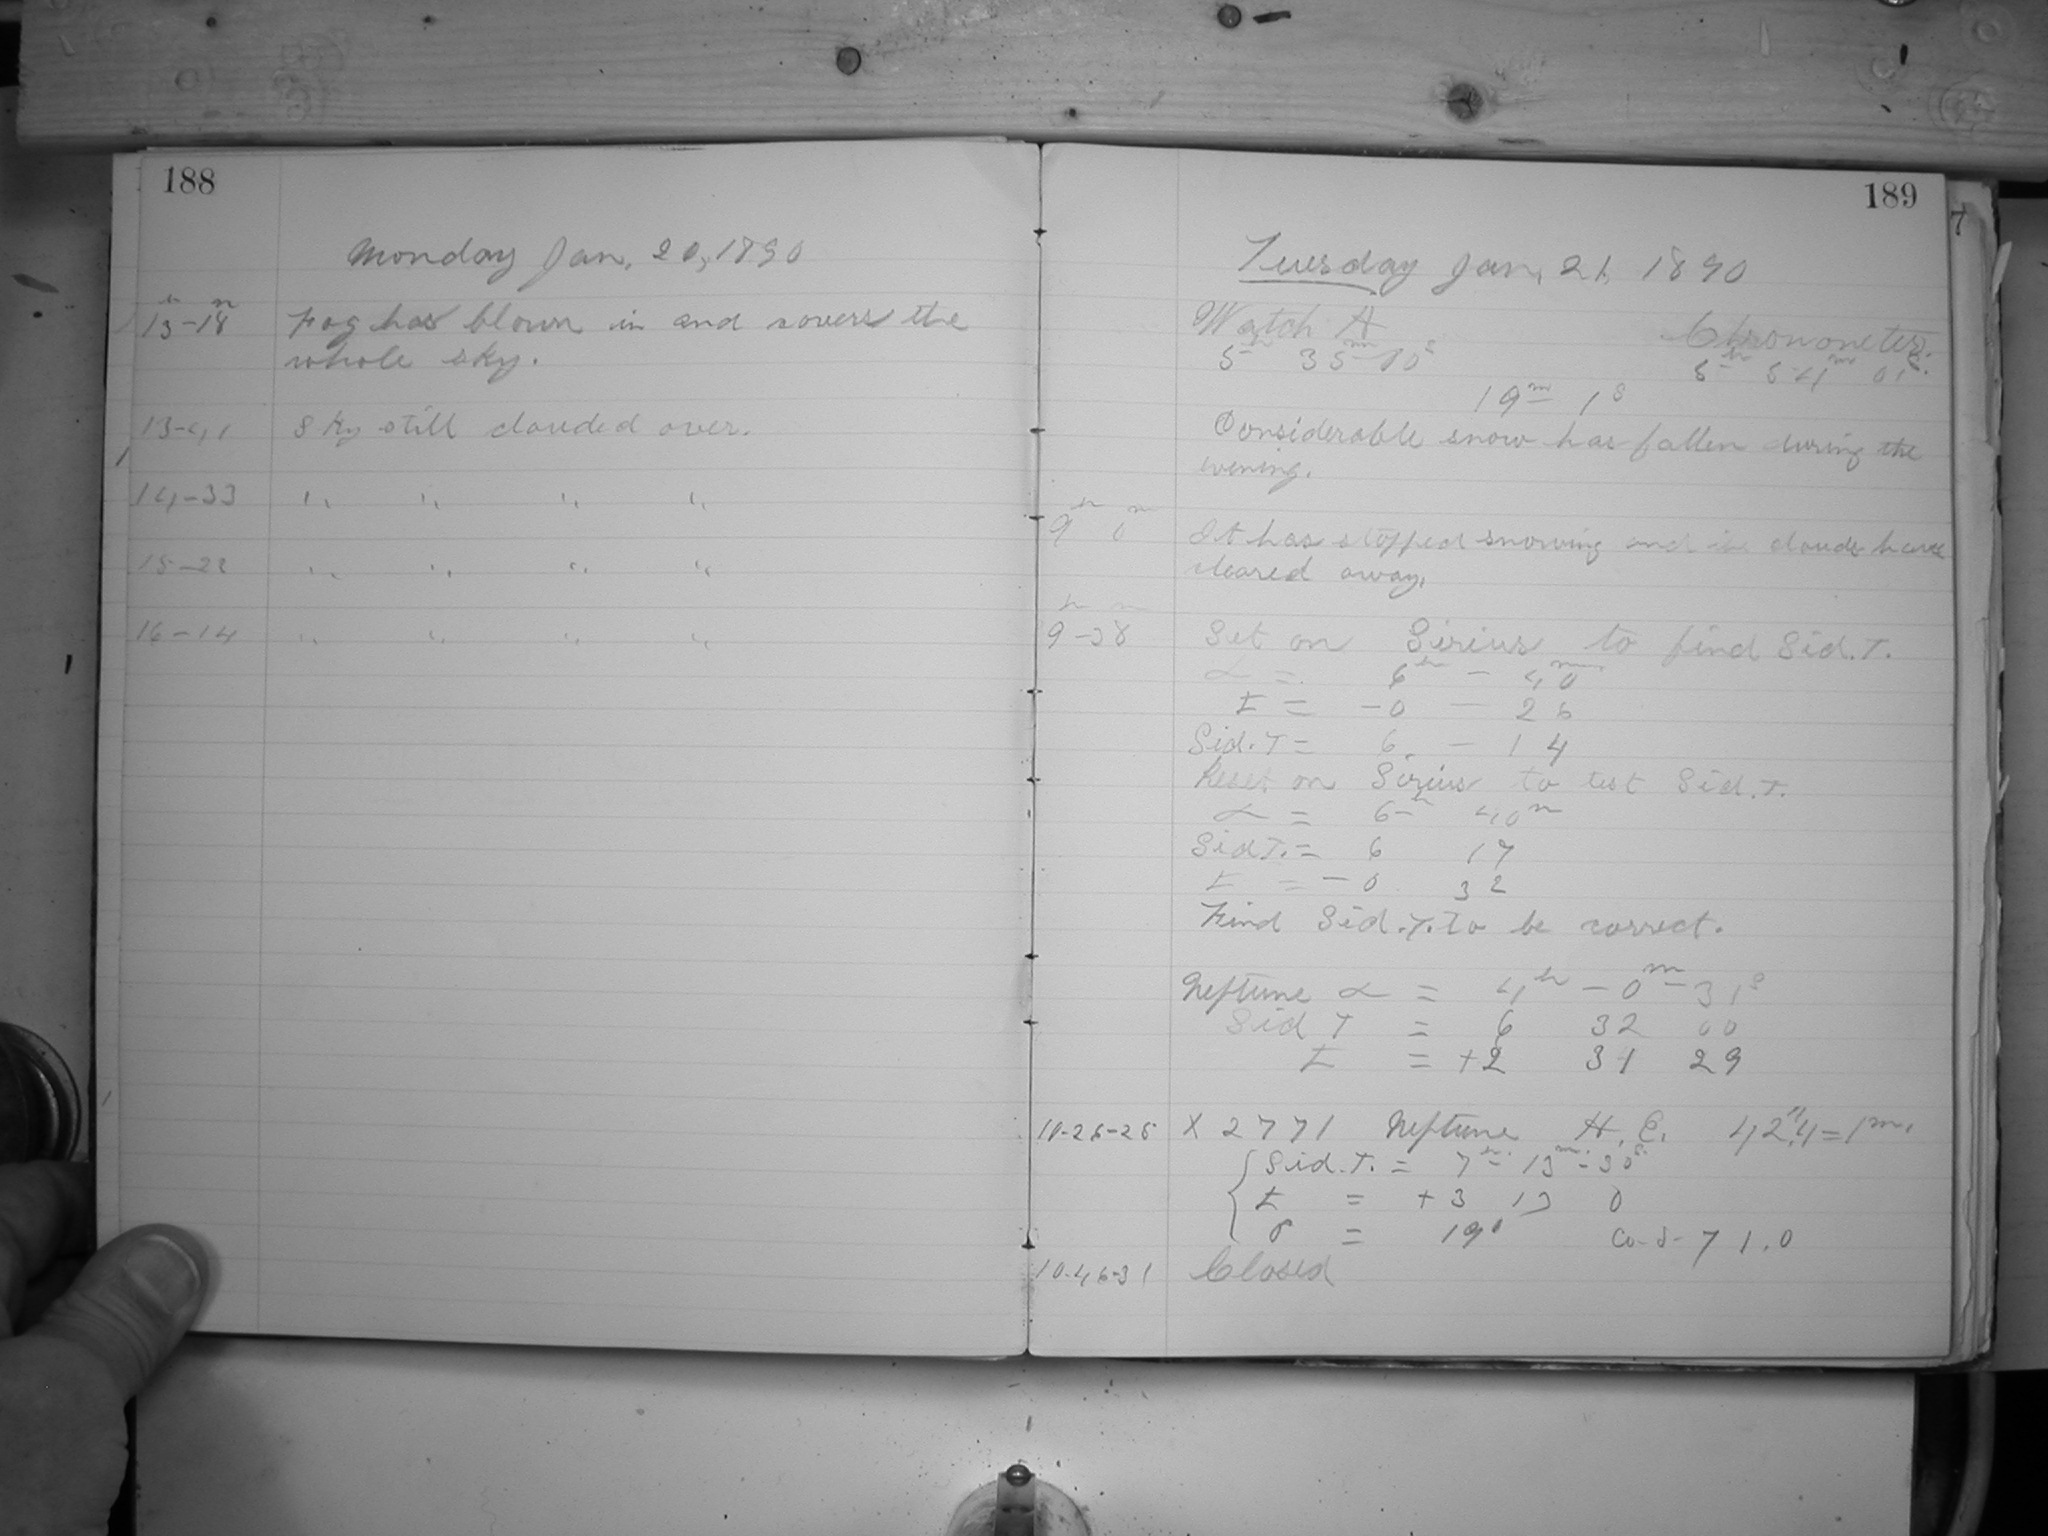 188
Monday Jan. 20, 1890
h m
13-18 Fog has blown in and covers the
whole sky.
13-41 Sky still clouded over.
14-33 " " " "
15-22 " " " "
16-14 " " " "
189
7
Tuesday Jan. 21, 1890
Watch A Chronometer.
5h 35m 00s 5h 54m 01s.
19m 1s
Considerable snow has fallen during the
evening.
9h 0m It has stopped snowing and the clouds have
cleared away.
h m
9-38 Set on Sirius to find Sid. T.
α = 6h - 40m
t = -0 - 26
Sid. T = 6 - 14
Reset on Sirius to test Sid. T.
α = 6h 40m
Sid T. = 6 17
t = -0 32
Find Sid. T. to be correct.
Neptune α = 4h - 0m - 31s
Sid T = 6 32 00
t = +2 31 29
10-26-26 X 2771 Neptune H. E. 42".4 = 1m.
Sid. T. = 7h - 13m - 30s
t = +3 13 0
δ = 19° Co-δ- 71.0
10-46-31 Closed